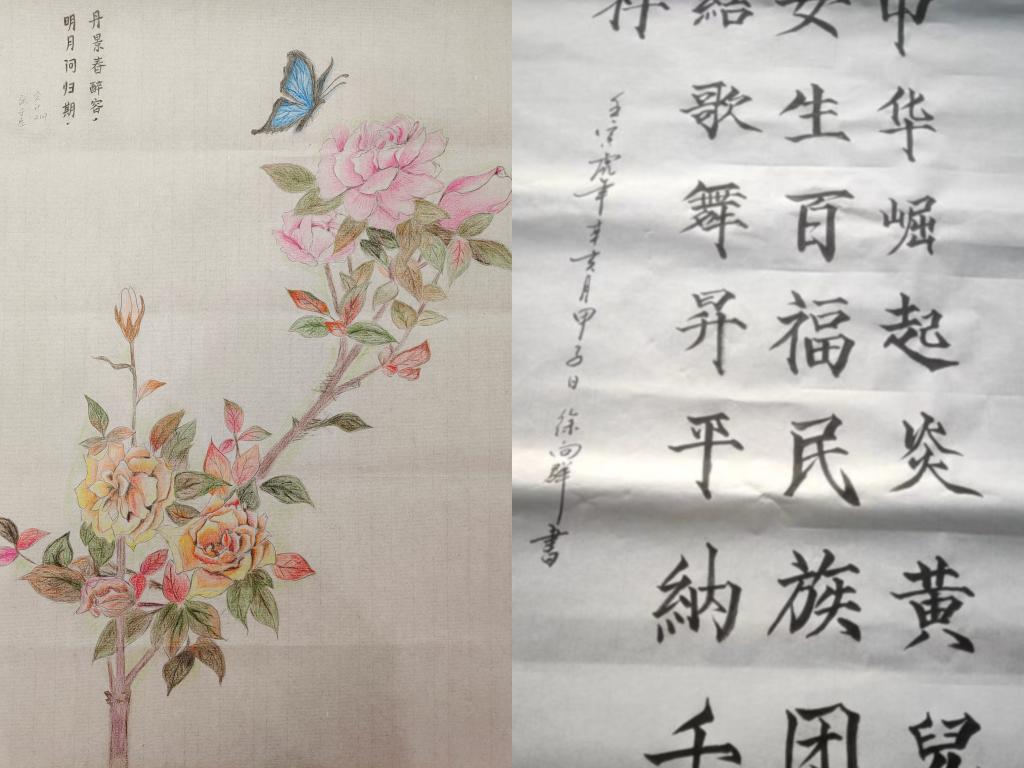 丹景春醉容，
明月问归期．
中华崛起炎黄兒
安生百福民族团
歌舞昇平納千
壬寅虎年辛亥月甲子日徐向群書